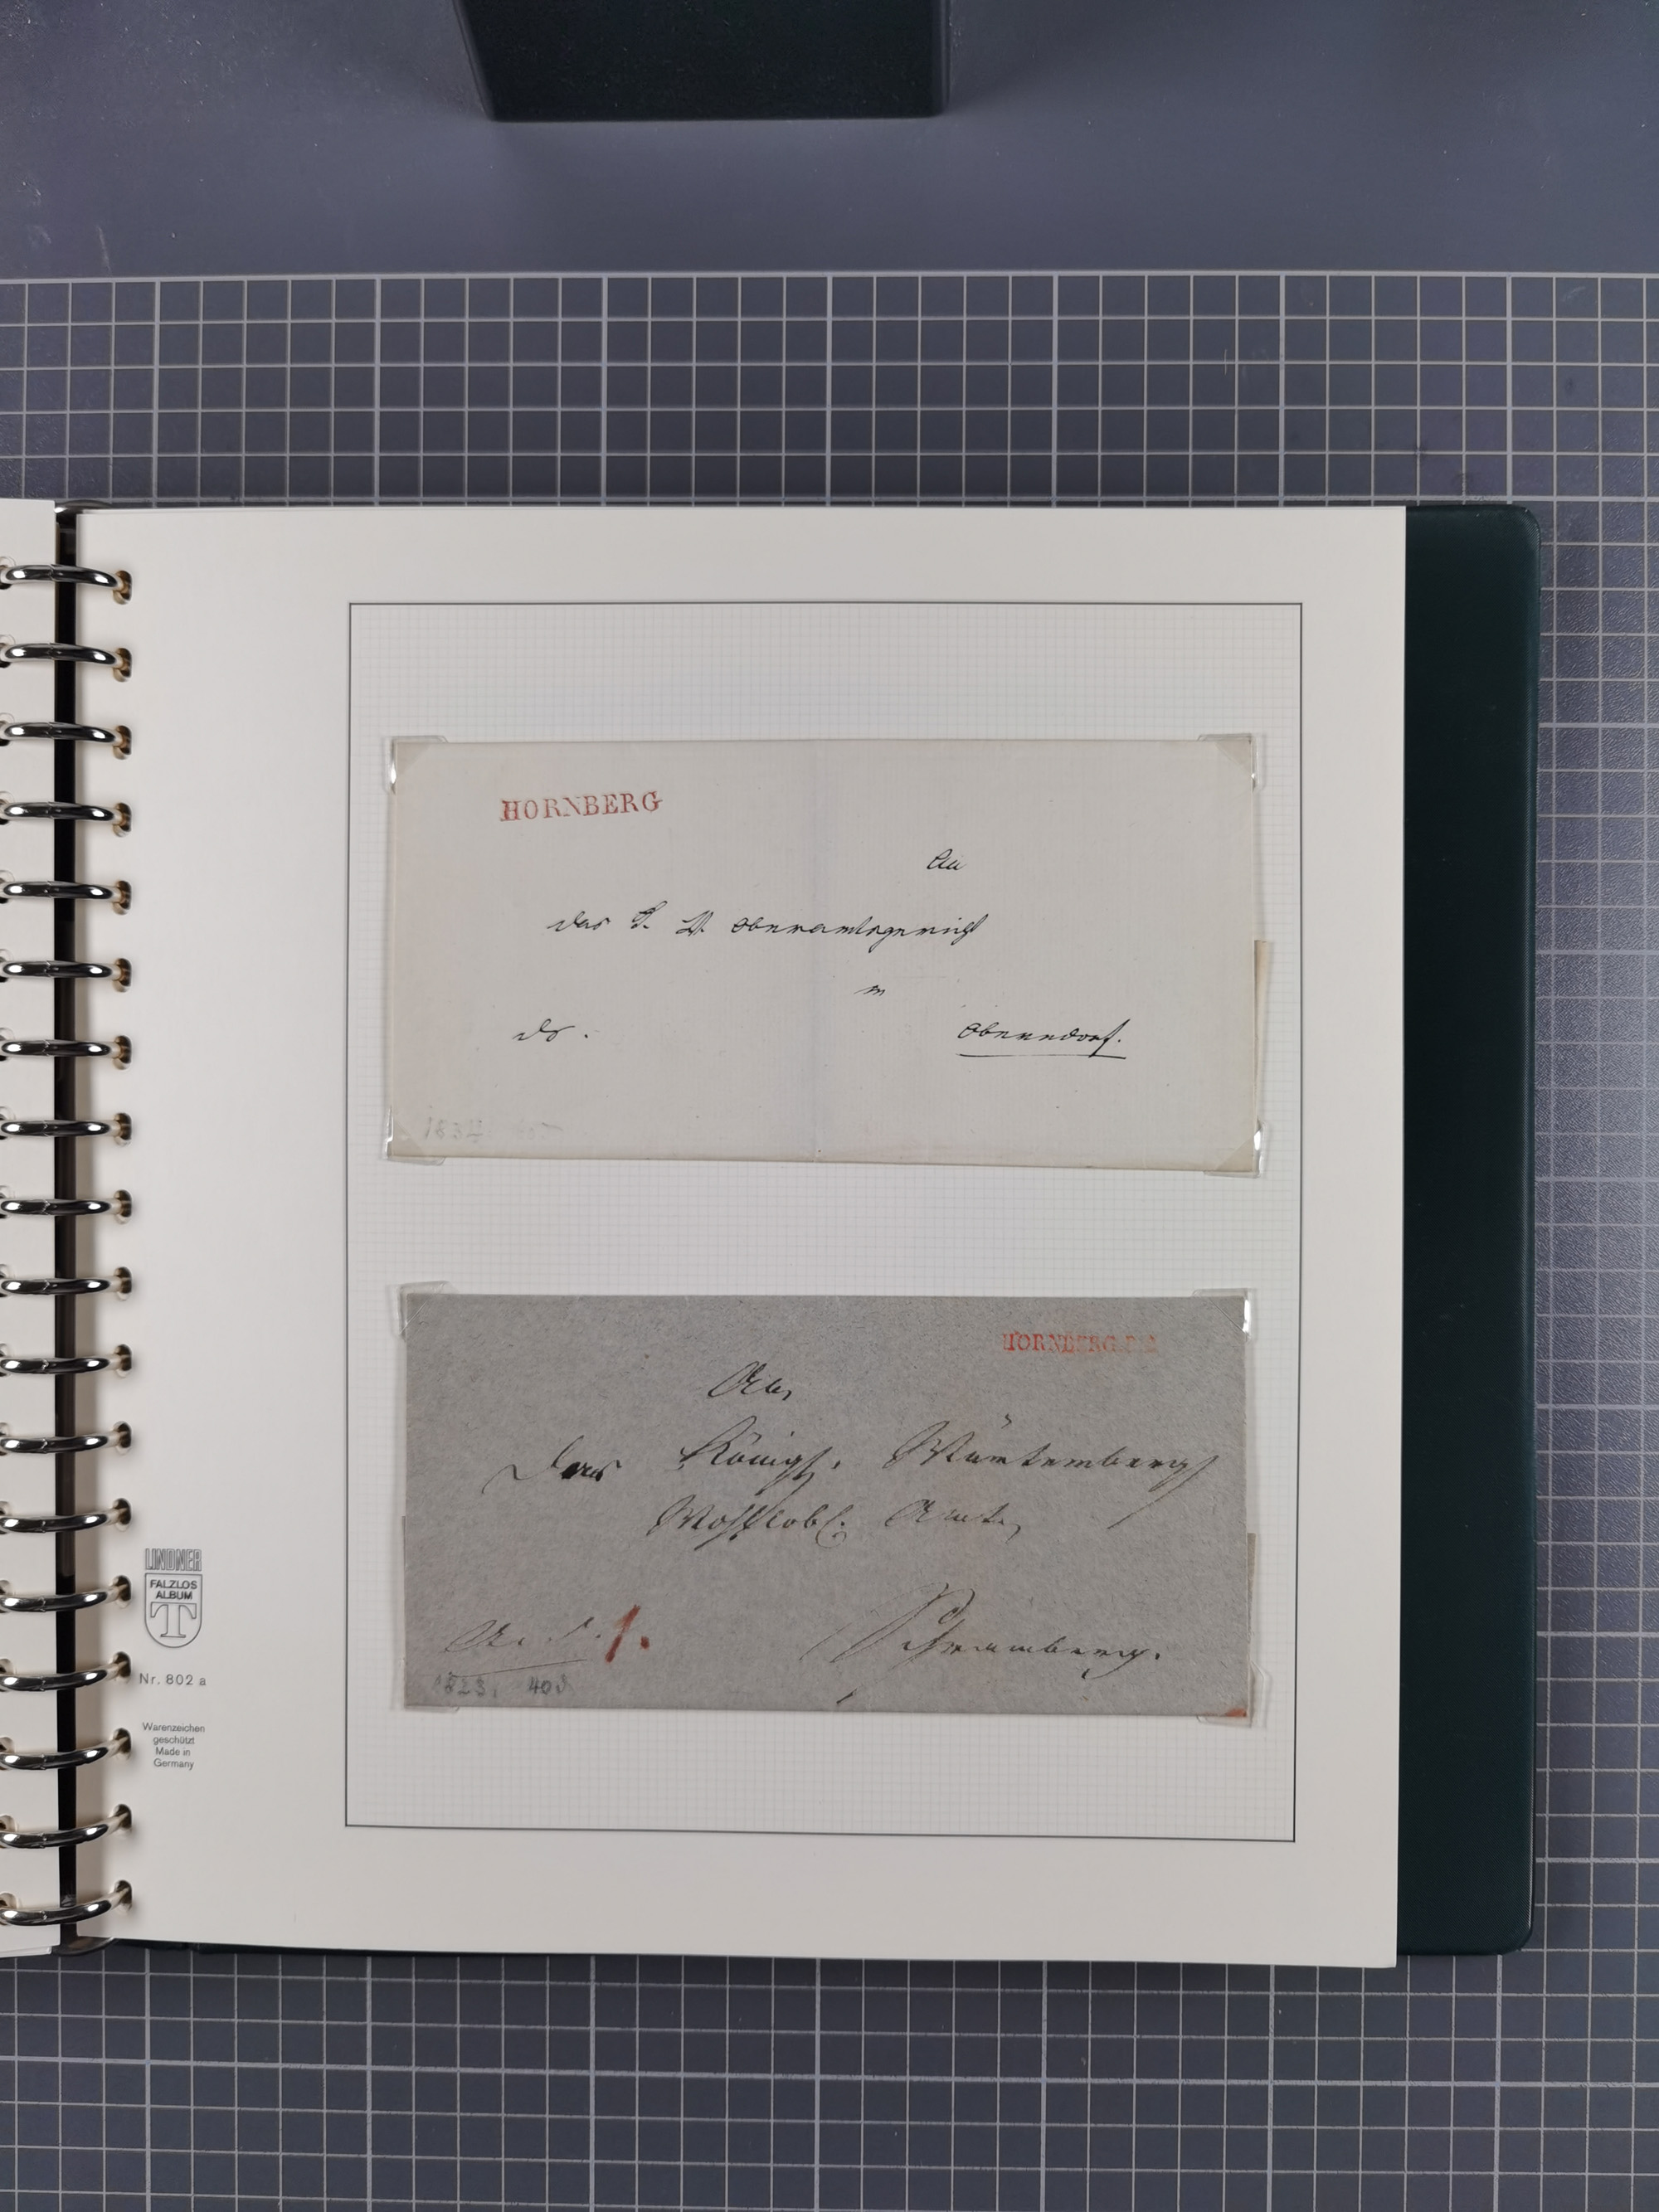 HORNBERG
An
das K. W. Oberamtsgericht
in
Ds.
Oberndorf.
1834
HORNBERG
An
Das Königl. Würtembergl
Wohllöbl. Amt
1.
Schramberg.
1823. 40
LINDNER
FALZLOS
ALBUM
T
Nr. 802 a
Warenzeichen
geschützt
Made in
Germany